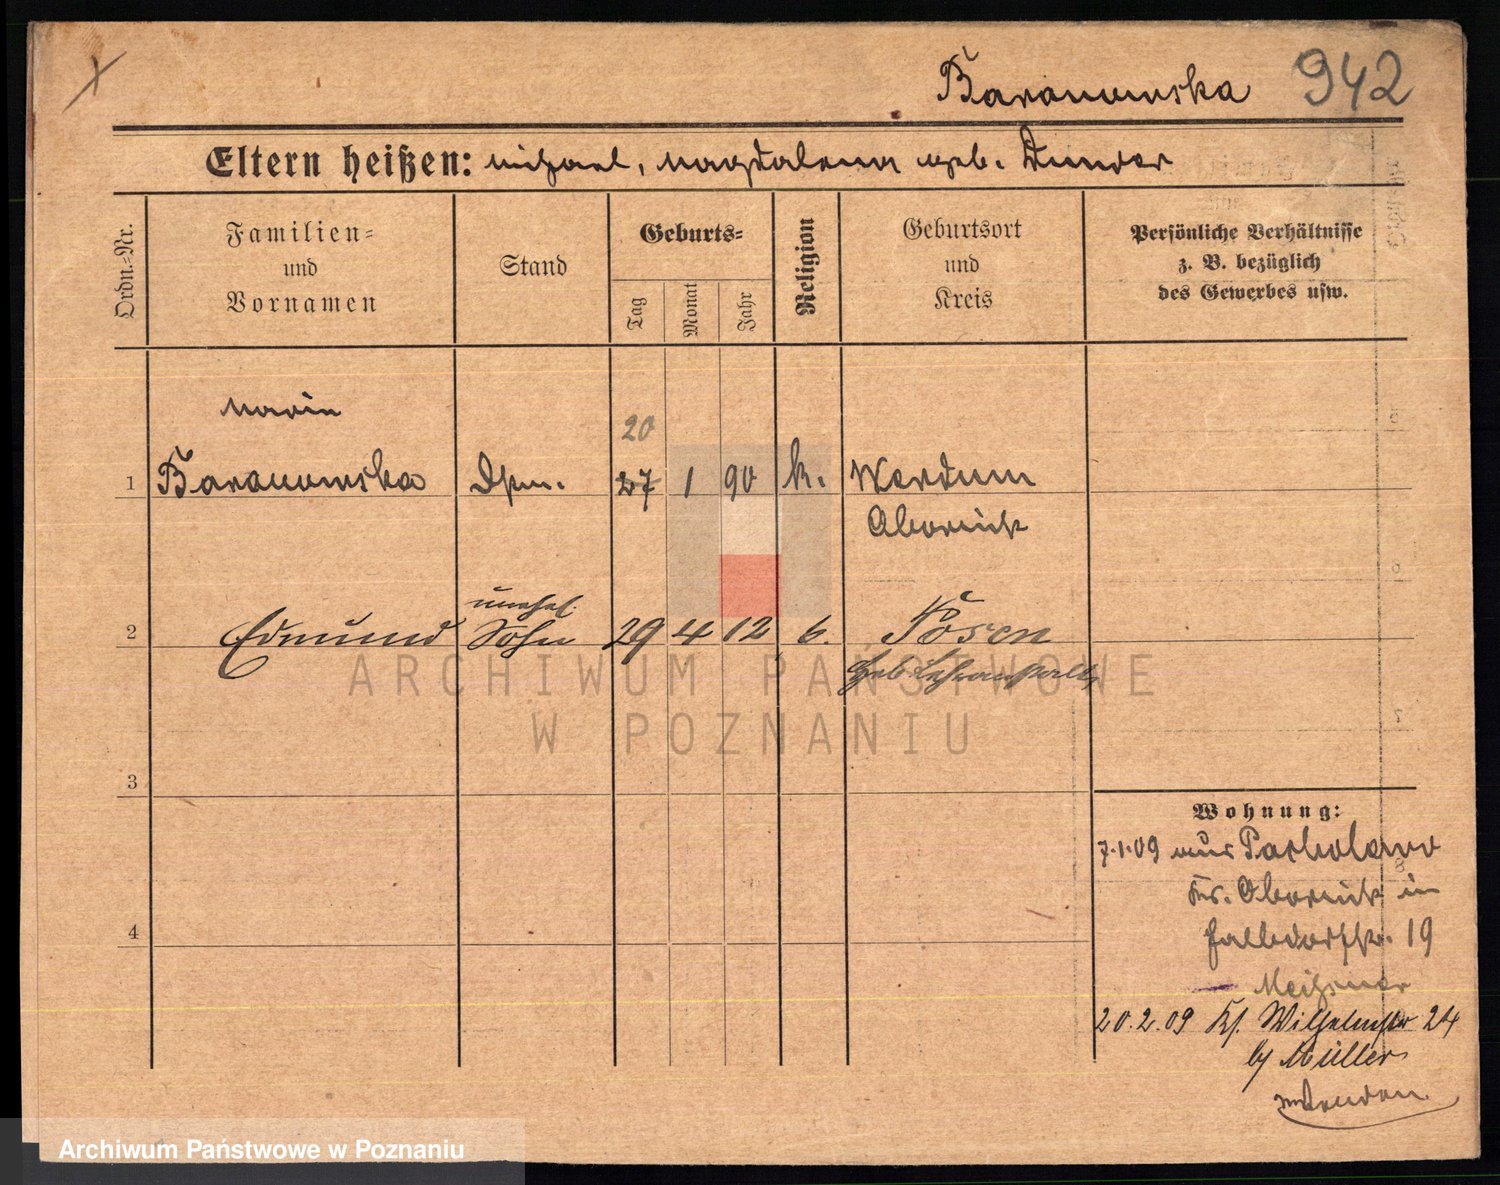 Baranowska 942
Eltern heißen: Michael, Magdalena geb. Dunder
Ordn.=Nr.
Familien=
und
Vornamen
Stand
Geburts=
Tag
Monat
Jahr
Religion
Geburtsort
und
Kreis
Persönliche Verhältnisse
z. B. bezüglich
des Gewerbes usw.
Marie
20
1 Baranowska 27 1 90 k. Wardum
Obornik
unehel.
2 Edmund Sohn 29 4 12 k. Posen
Heb. Lehranstalt
3
4
Wohnung:
7.1.09 aus Parkolewo
Kr. Obornik in
19
Meißner
20.2.09 Kl. Wilhelmstr 24
b/ Müller
ARCHIWUM PAŃSTWOWE
W POZNANIU
Archiwum Państwowe w Poznaniu